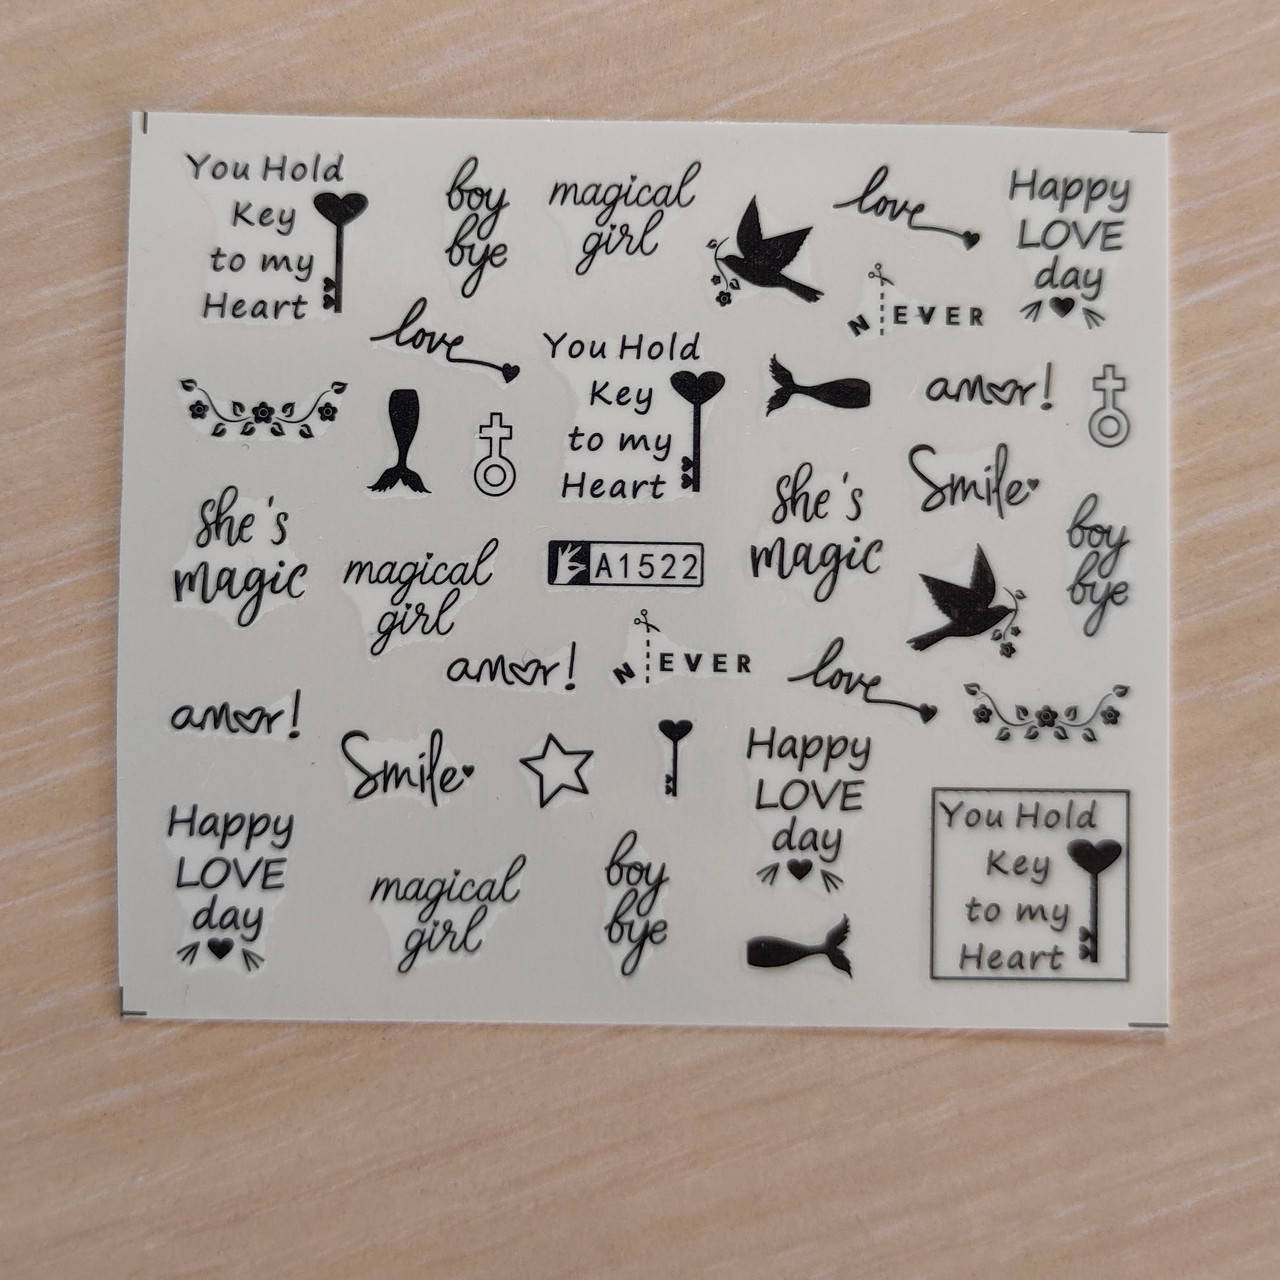 You Hold
Key
to my
Heart
boy
bye
magical
girl
love
Happy
LOVE
day
NEVER
love
You Hold
Key
to my
Heart
amor!
Smile
she's
magic
she's
magic
boy
bye
magical
girl
A1522
amor!
NEVER
love
amor!
Smile
Happy
LOVE
day
Happy
LOVE
day
magical
girl
boy
bye
You Hold
Key
to my
Heart